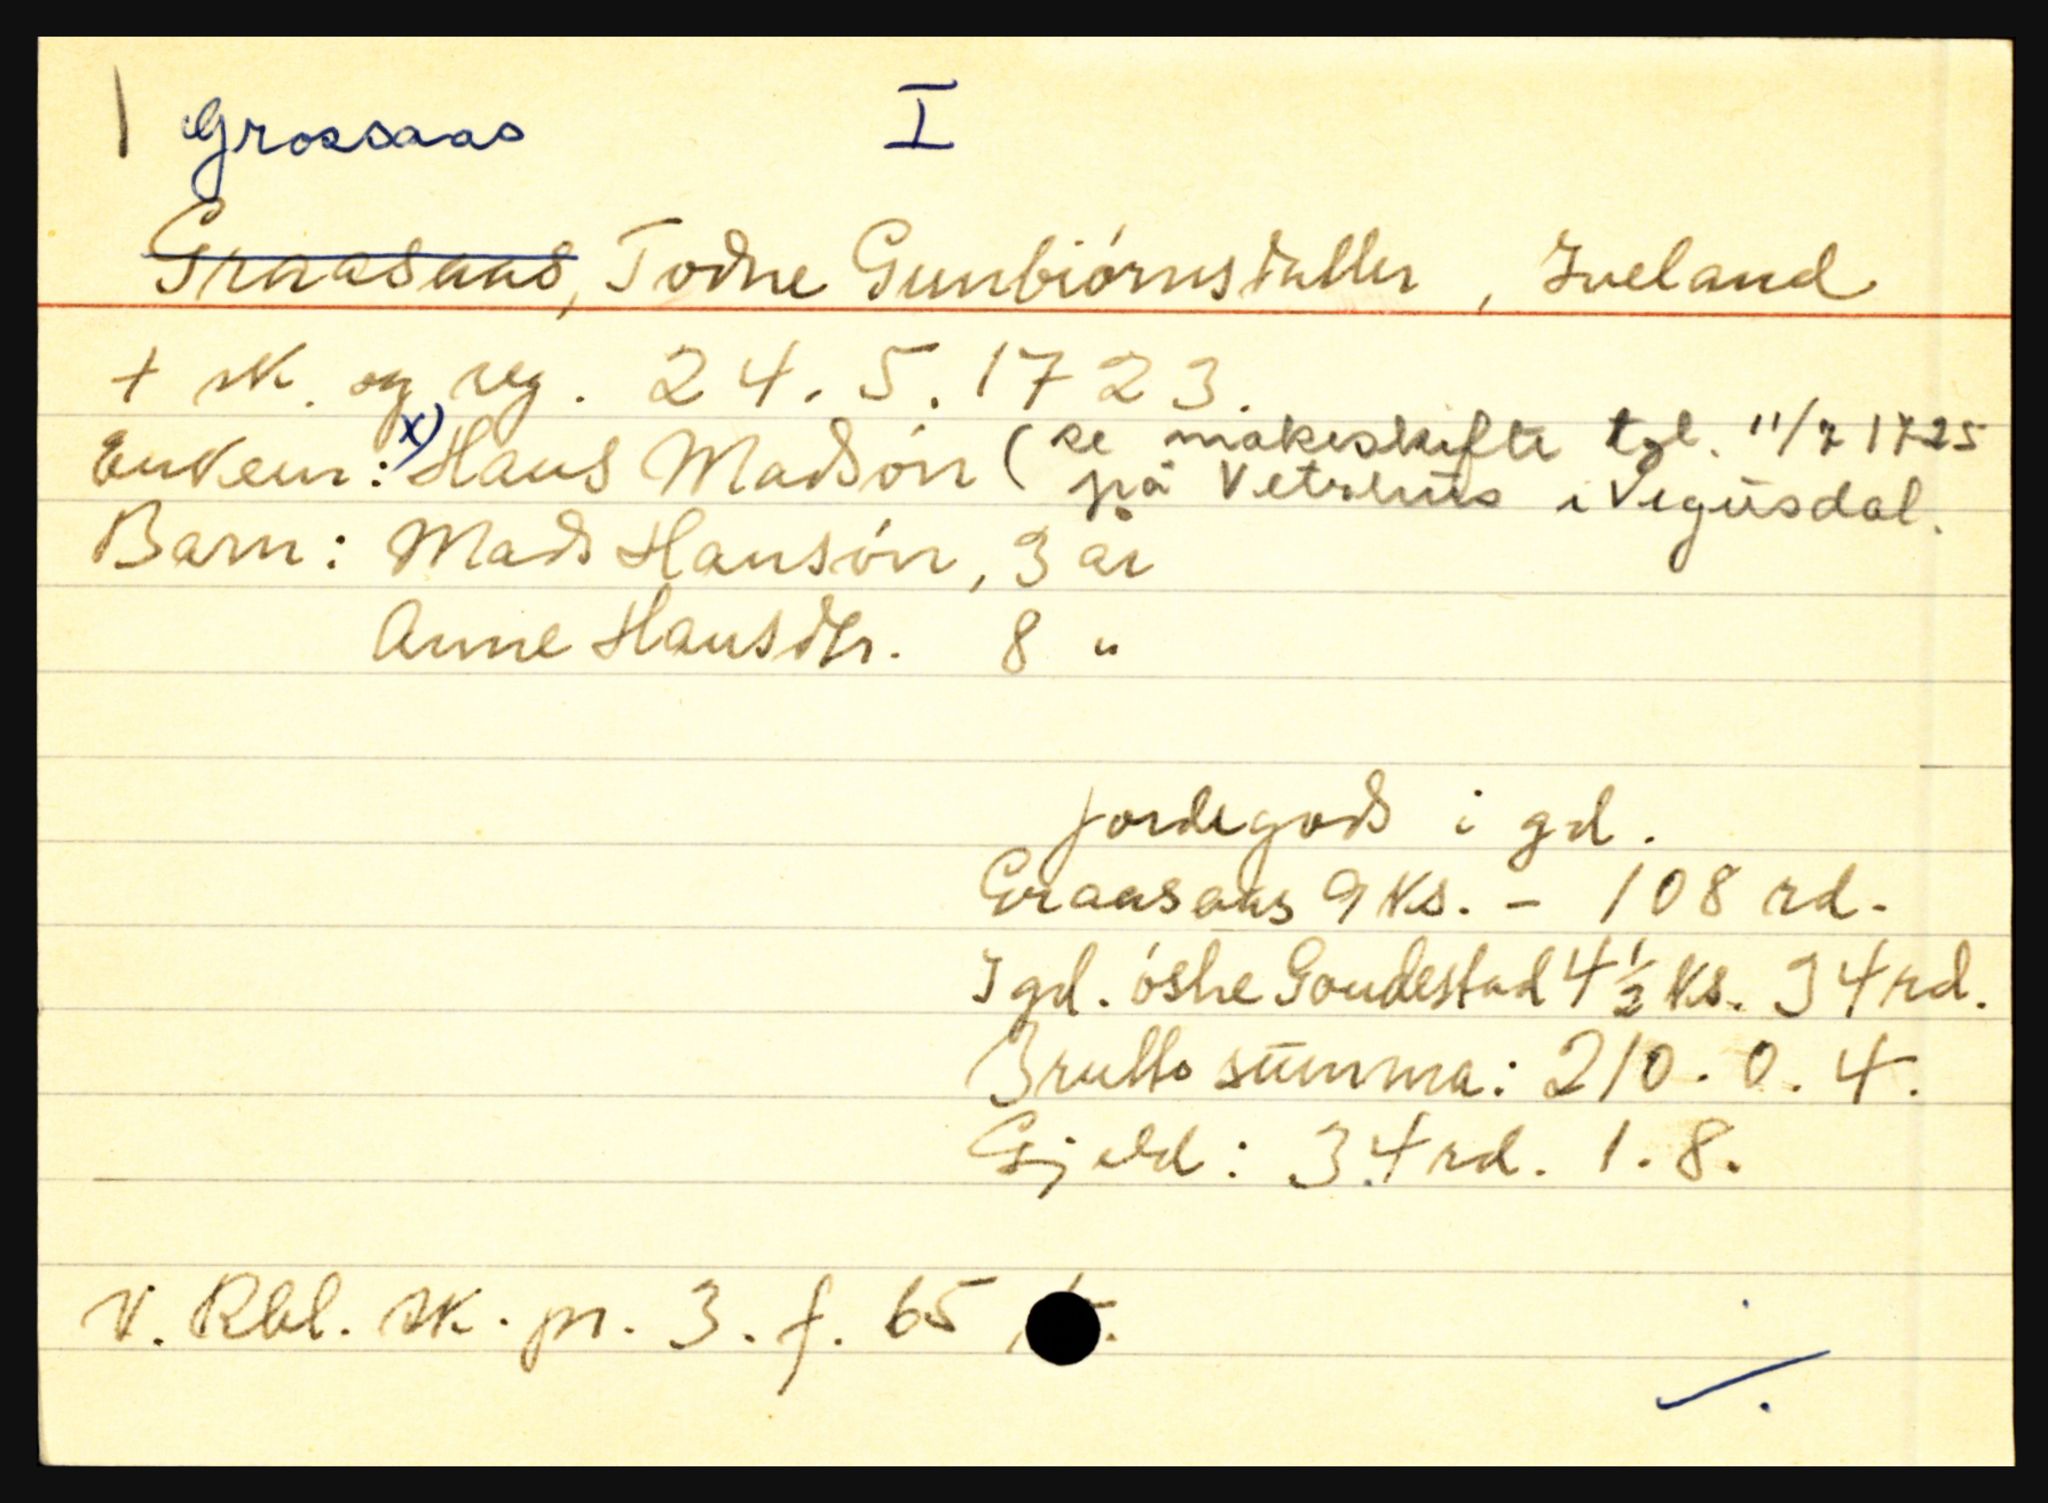 Grossaas I
Graasaas, Todne Gunbiörnsdatter, Iveland
+ sk. og reg. 24.5.1723.
Enkem: x) Hans Madsön (se makeskifte tgl. 11/7 1725
på Vetrhus i Vegusdal.
Barn: Mads Hansön, 3 år
Anne Hansdtr. 8 "
jordegods i gd.
Graasaas 9 ks. - 108 rd.
I gd. östre Goudestad 4 1/2 ks. 34 rd.
Brutto summa: 210. 0. 4.
Gjeld: 34 rd. 1. 8.
V. Rbl. sk. pr. 3. f. 65